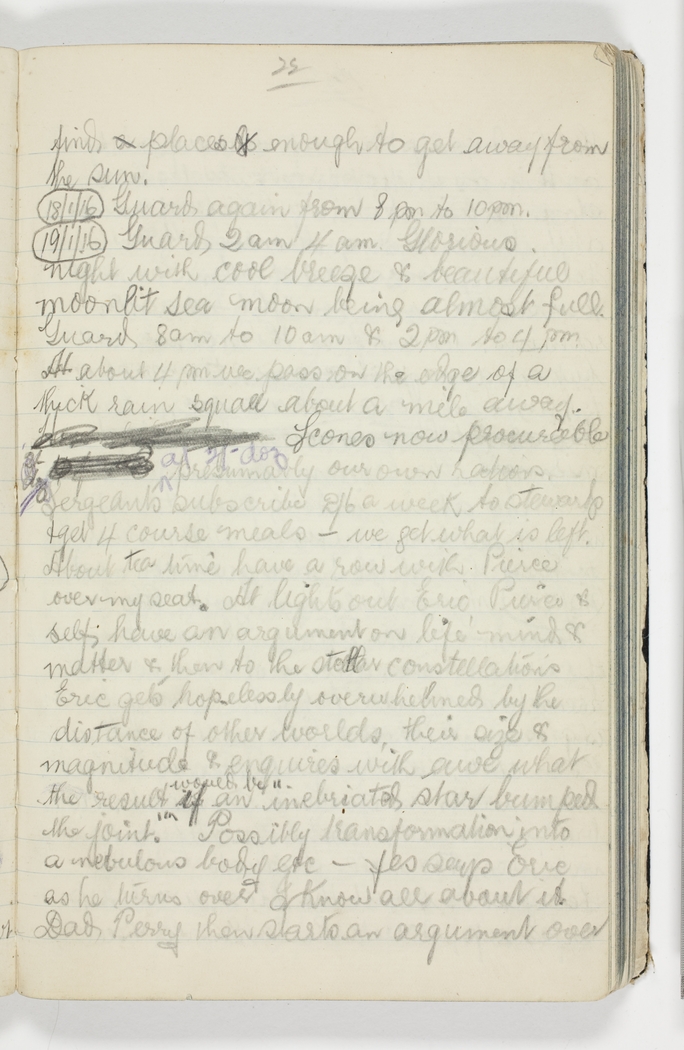 25
find places enough to get away from
the sun.
18/1/16 Guard again from 8 pm to 10 pm.
19/1/16 Guard 2am 4 am. Glorious
night with cool breeze & beautiful
moonlit sea moon being almost full.
Guard 8am to 10am & 2pm to 4 pm.
At about 4 pm we pass on the edge of a
thick rain squall about a mile away.
Scones now procurable
at 2/- doz
presumarly our own rations.
Sergeants subscribe 2/6 a week to stewards
& get 4 course meals – we get what is left.
About tea time have a row with Pierce
over my seat. At lights out Eric Pierce &
self have an argument on life mind &
matter & then to the stellar constellations
Eric gets hopelessly overwhelmed by the
distance of other worlds, their size &
magnitude & enquires with awe what
would be"
the result "if an inebriated star bumped
the joint." Possibly transformation into
a nebulous body etc – Yes says Eric
as he turns over I know all about it
Dad Perry then starts an argument over